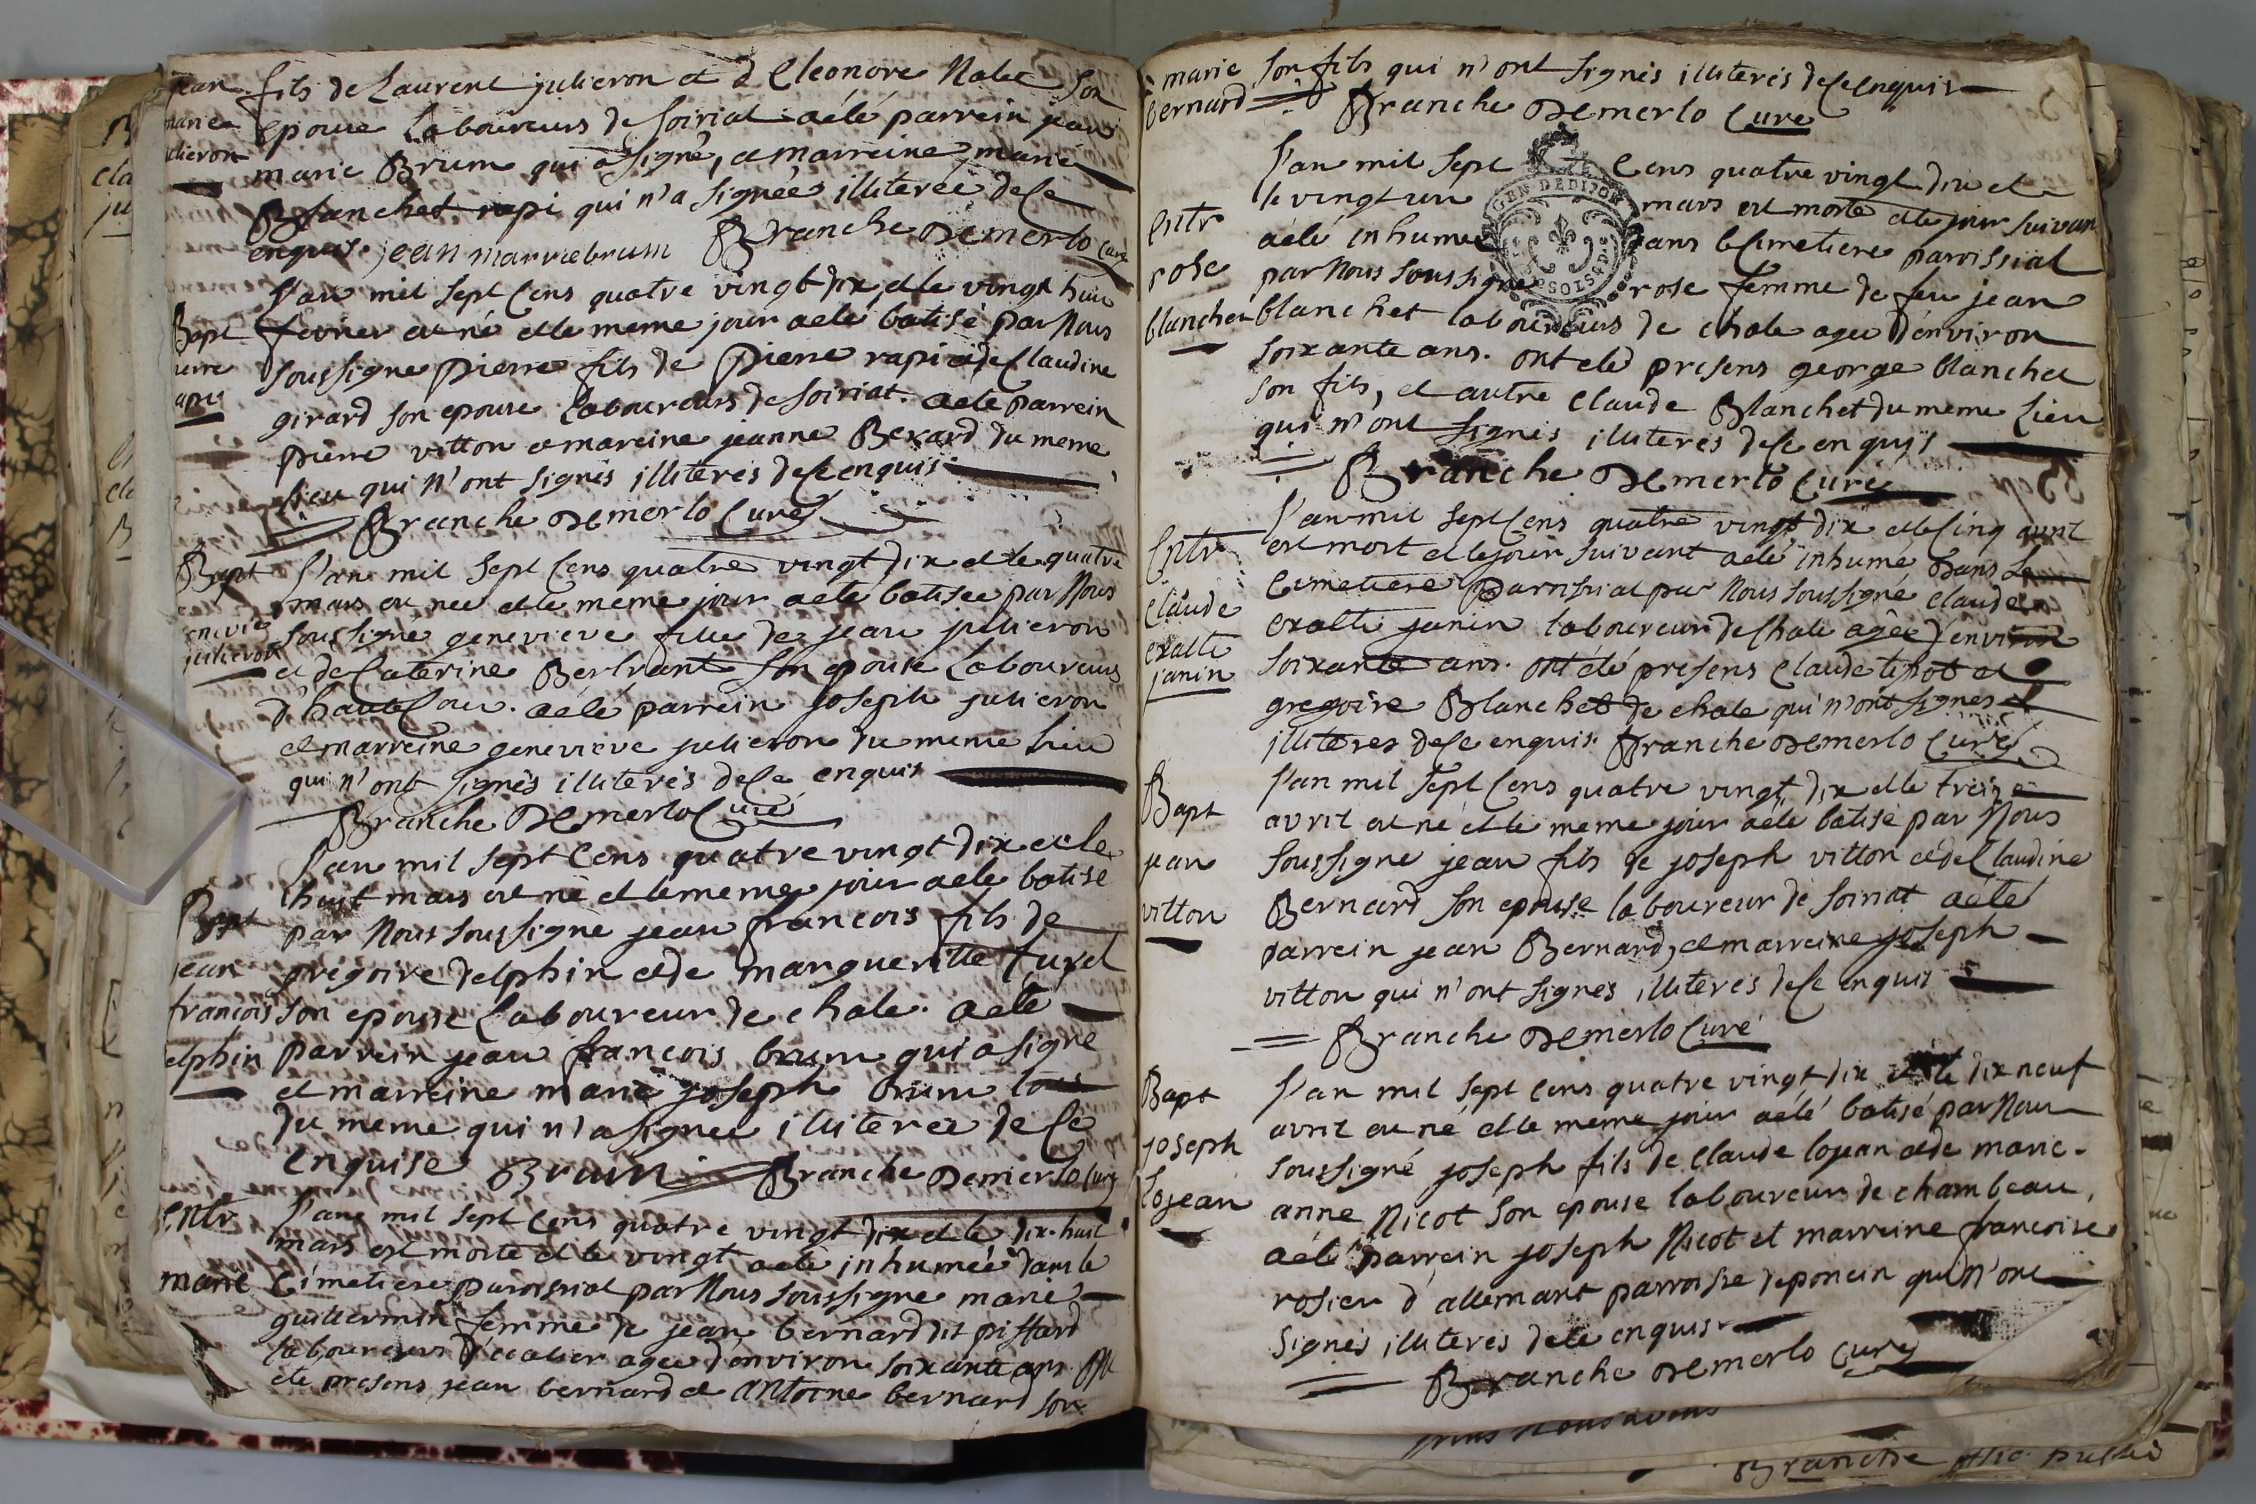 jean
marie
julieron
fils de Laurent julieron et d Eleonore Nalet son
epouse laboureurs de soiriat. a été parrein jean
marie Brum qui a signé, et marreine marie
Blanchet rapi qui n'a signée illiterée de ce
enquise. jean marriebrum Branche Demerlo curé
Bapt
pierre
rapi
l'an mil sept cens quatre vingt dix et le vingt huit
fevrier est né et le meme jour a eté batisé par Nous
soussigné pierre fils de pierre rapi et de Claudine
girard son epouse laboureurs de soiriat. a eté parrein
pierre vitton et mareine jeanne Berard du meme
lieu qui n'ont signés illiterés de ce enquis
Branche Demerlo Curé
Bapt
genevieve
julieron
l'an mil sept cens quatre vingt dix et le quatre
mars est née et le meme jour a eté batisée par Nous
soussigné genevieve fille de jean julieron
et de Caterine Bertrant son epouse laboureurs
d'hautecour. a été parrein joseph julieron
et marreine genevieve julieron du meme lieu
qui n'ont signés illiterés de ce enquis
Branche Demerlo Curé
Bapt
jean
francois
delphin
l'an mil sept cens quatre vingt dix et le
huit mars est né et le meme jour a eté batisé
par Nous soussigné jean francois fils de
gregoire delphin et de margueritte Curel
son epouse laboureur de chale. a eté
parrein jean francois brum qui a signé
et marreine marie joseph brum tous
du meme qui n'a signée illiterée de ce
enquise Brum Branche Demerlo curé
entr
marie
l'an mil sept cens quatre vingt dix et le dix-huit
mars est morte et le vingt a eté inhumée dans le
cimetiere paroissial par Nous soussigné marie
guillermin femme de jean bernard dit piffard
laboureurs agée d'environ soixante ans. ont
eté presens jean bernard et antoine bernard son
marie
bernard
son fils qui n'ont signés illiterés de ce enquis
Branche Demerlo Curé
GEN DE DIJON
entr
rose
blanchet
l'an mil sept cens quatre vingt dix et
le vingt un mars est morte et le jour suivant
a été inhumée dans le cimetiere parrissial
par Nous soussigné rose femme de feu jean
blanchet laboureurs de chale agée d'environ
soixante ans. ont eté presens george blanchet
son fils, et autre claude Blanchet du meme lieu
qui n'ont signés illiterés de ce enquis
Branche Demerlo Curé
Entr
claude
exalte
janin
l'an mil sept cens quatre vingt dix et le cinq avril
est mort et le jour suivant a eté inhumé dans le
Cimetiere Parrissial par Nous soussigné claude
exalte janin laboureur de chale agée d'environ
soixante ans. ont été presens claude et
gregoire Blanchet de chale qui n'ont signés
illiterés de ce enquis. Branche Demerlo Curé
Bapt
jean
vitton
l'an mil sept cens quatre vingt dix et le treize
avril est né et le meme jour a eté batisé par Nous
soussigné jean fils de joseph vitton et de Claudine
Bernard son epouse laboureur de soiriat a eté
parrein jean Bernard, et marreine joseph
vitton qui n'ont signés illiterés de ce enquis
Branche Demerlo Curé
Bapt
joseph
lojean
l'an mil sept cens quatre vingt dix et le dix neuf
avril est né et le meme jour a eté batisé par Nous
soussigné joseph fils de claude lojean et de marie
anne Nicot son epouse laboureurs de chambeau,
a eté parrein joseph Nicot et marreine francoise
rosier d'allemant parroisse de poncin qui n'ont
signés illiterés de ce enquis
Branche Demerlo Curé
Branche